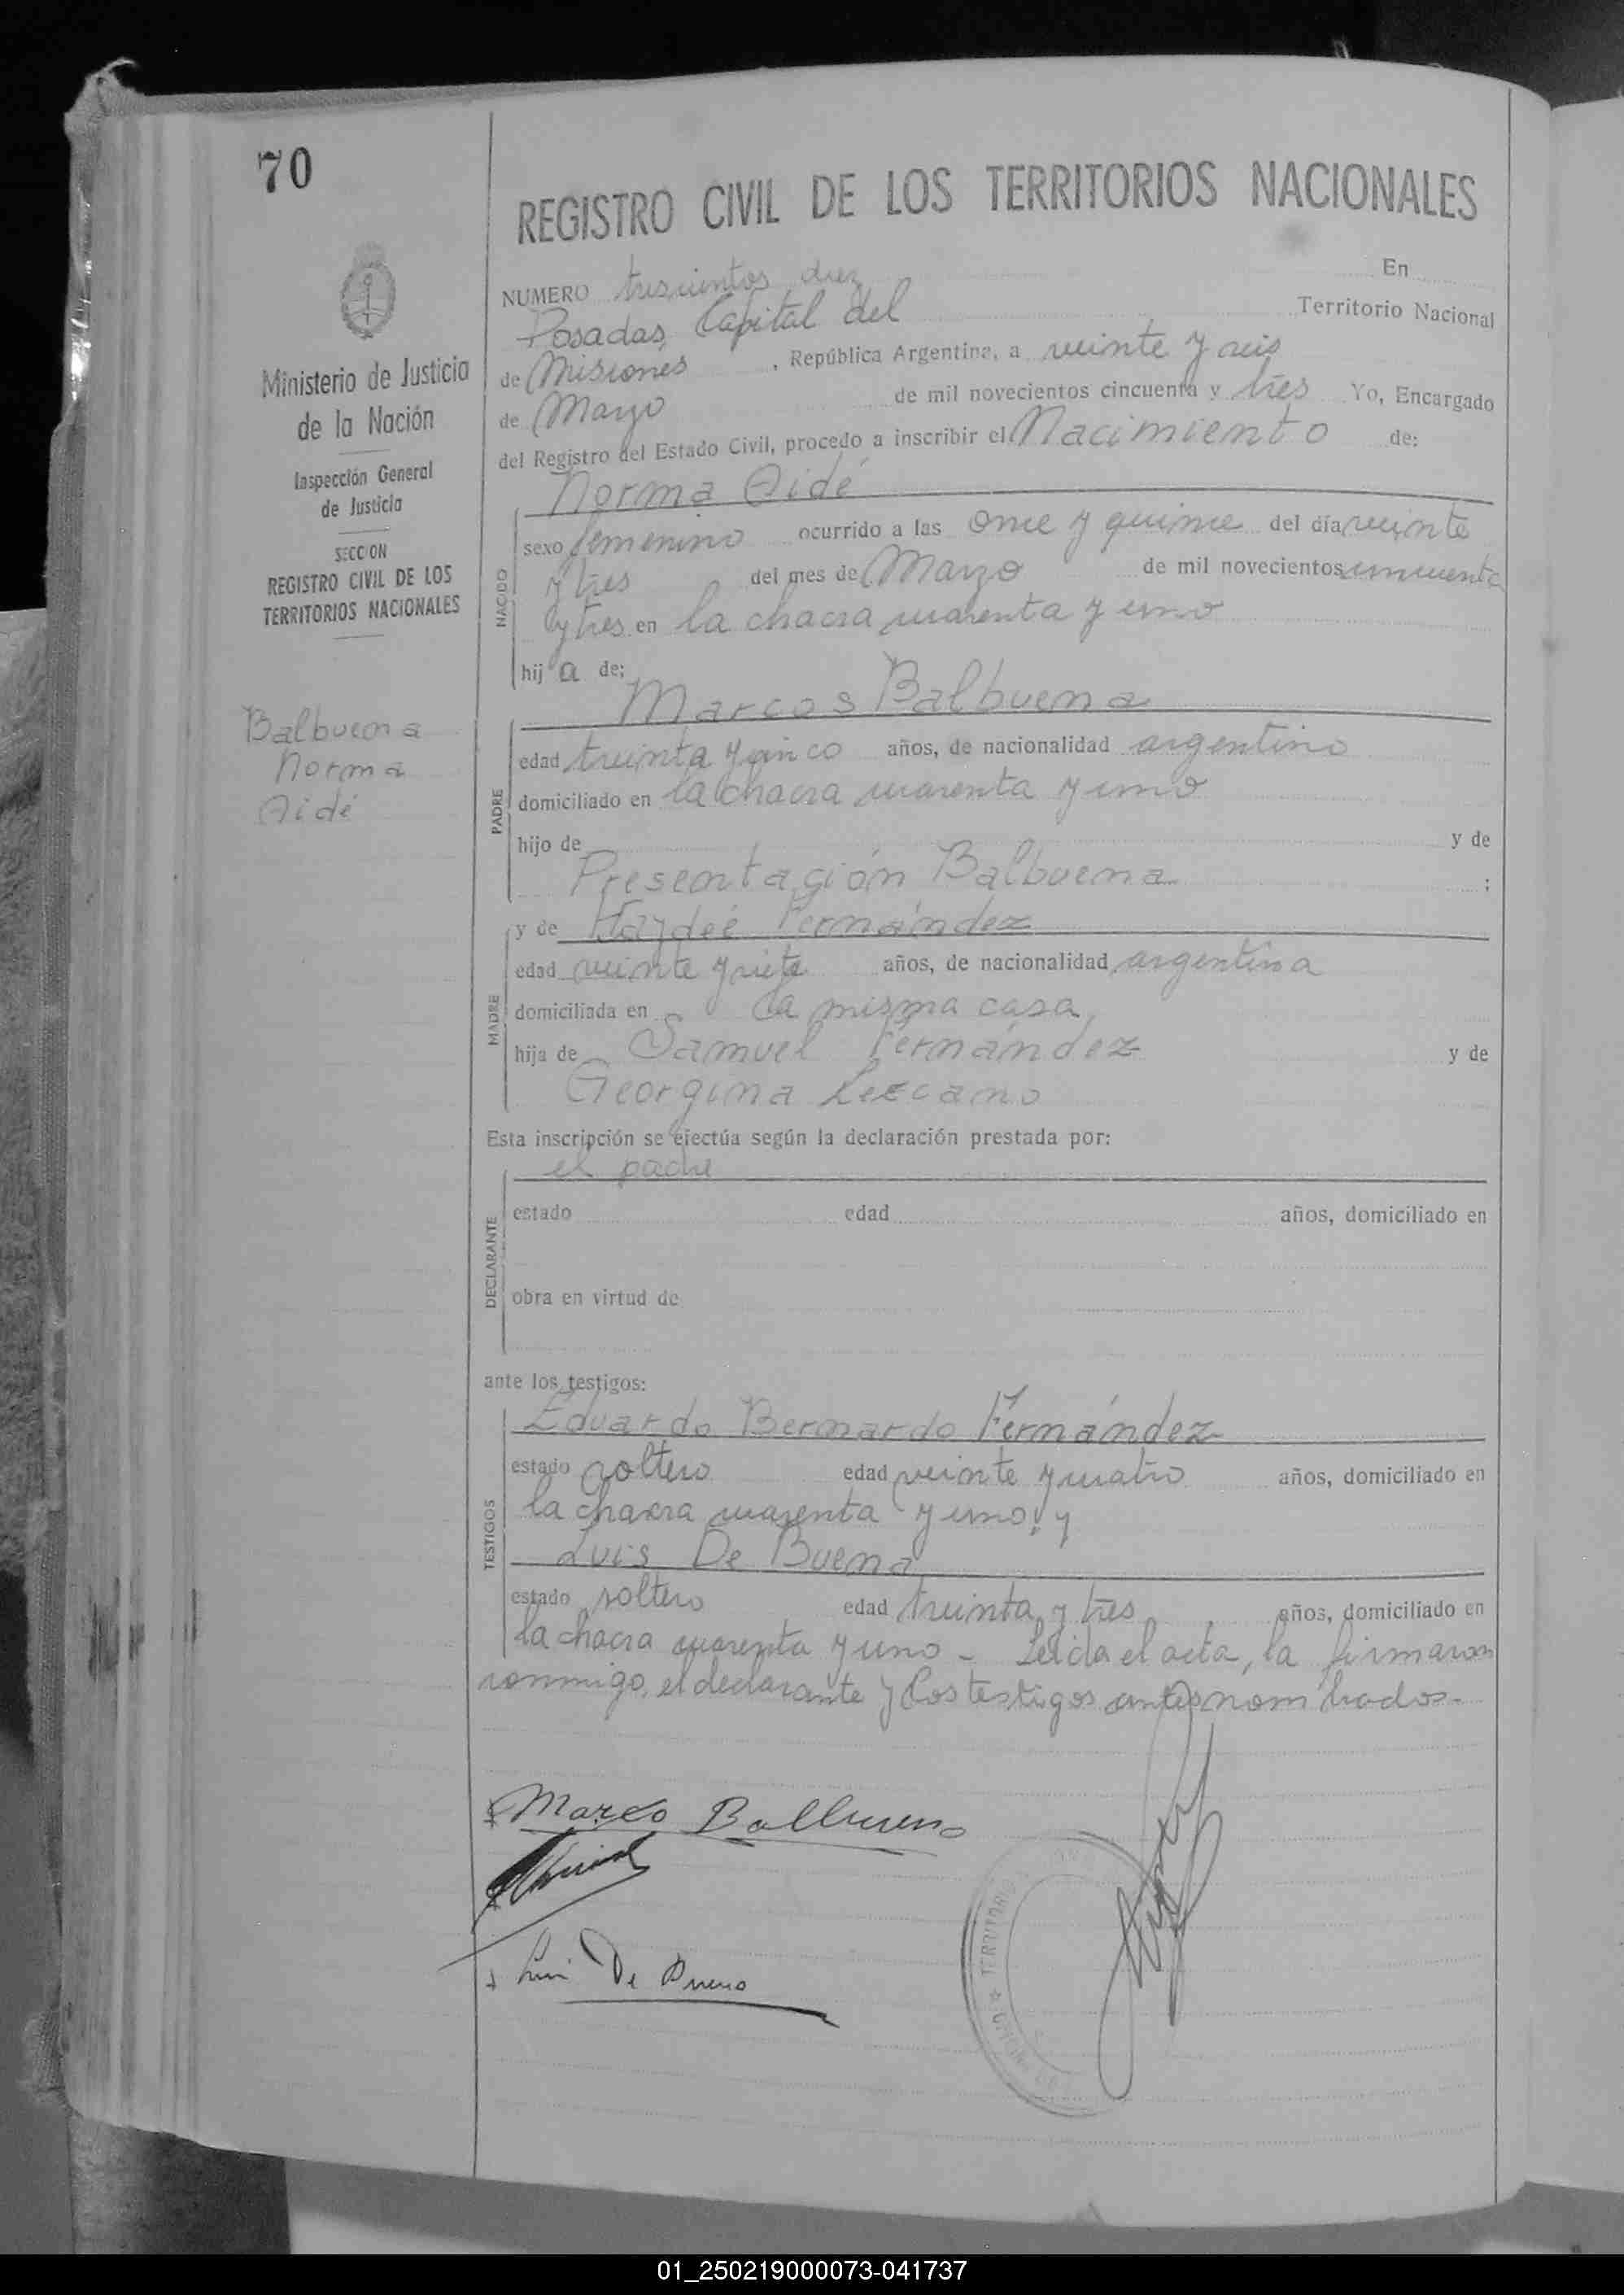 70
REGISTRO CIVIL DE LOS TERRITORIOS NACIONALES
Ministerio de Justicia
de la Nación
Inspección General
de Justicia
SECCION
REGISTRO CIVIL DE LOS
TERRITORIOS NACIONALES
Balbuena
Norma
Aidé
NUMERO trescientos diez En
Posadas, Capital del Territorio Nacional
de Misiones, República Argentina, a veinte y seis
de Marzo de mil novecientos cincuenta y tres Yo, Encargado
del Registro del Estado Civil, procedo a inscribir el Nacimiento de:
Norma Aidé
NACIDO
sexo femenino ocurrido a las once y quince del día veinte
y tres del mes de Marzo de mil novecientos cincuenta
y tres en la chacra cuarenta y uno
hija de:
Marcos Balbuena
PADRE
edad treinta y cinco años, de nacionalidad argentino
domiciliado en la chacra cuarenta y uno
hijo de y de
Presentación Balbuena ;
y de Haydeé Fernández
MADRE
edad veinte y siete años, de nacionalidad argentina
domiciliada en la misma casa,
hija de Samuel Fernández y de
Georgina Lezcano
Esta inscripción se efectúa según la declaración prestada por:
el padre
DECLARANTE
estado edad años, domiciliado en
obra en virtud de
ante los testigos:
Eduardo Bernardo Fernández
TESTIGOS
estado soltero edad veinte y cuatro años, domiciliado en
la chacra cuarenta y uno, y
Luis De Buena
estado soltero edad treinta y tres años, domiciliado en
la chacra cuarenta y uno - Leída el acta, la firmaron
conmigo, el declarante y los testigos antes nombrados.-
Marco Balbueno
Luis De Bueno
TERRITORIO
01_250219000073-041737